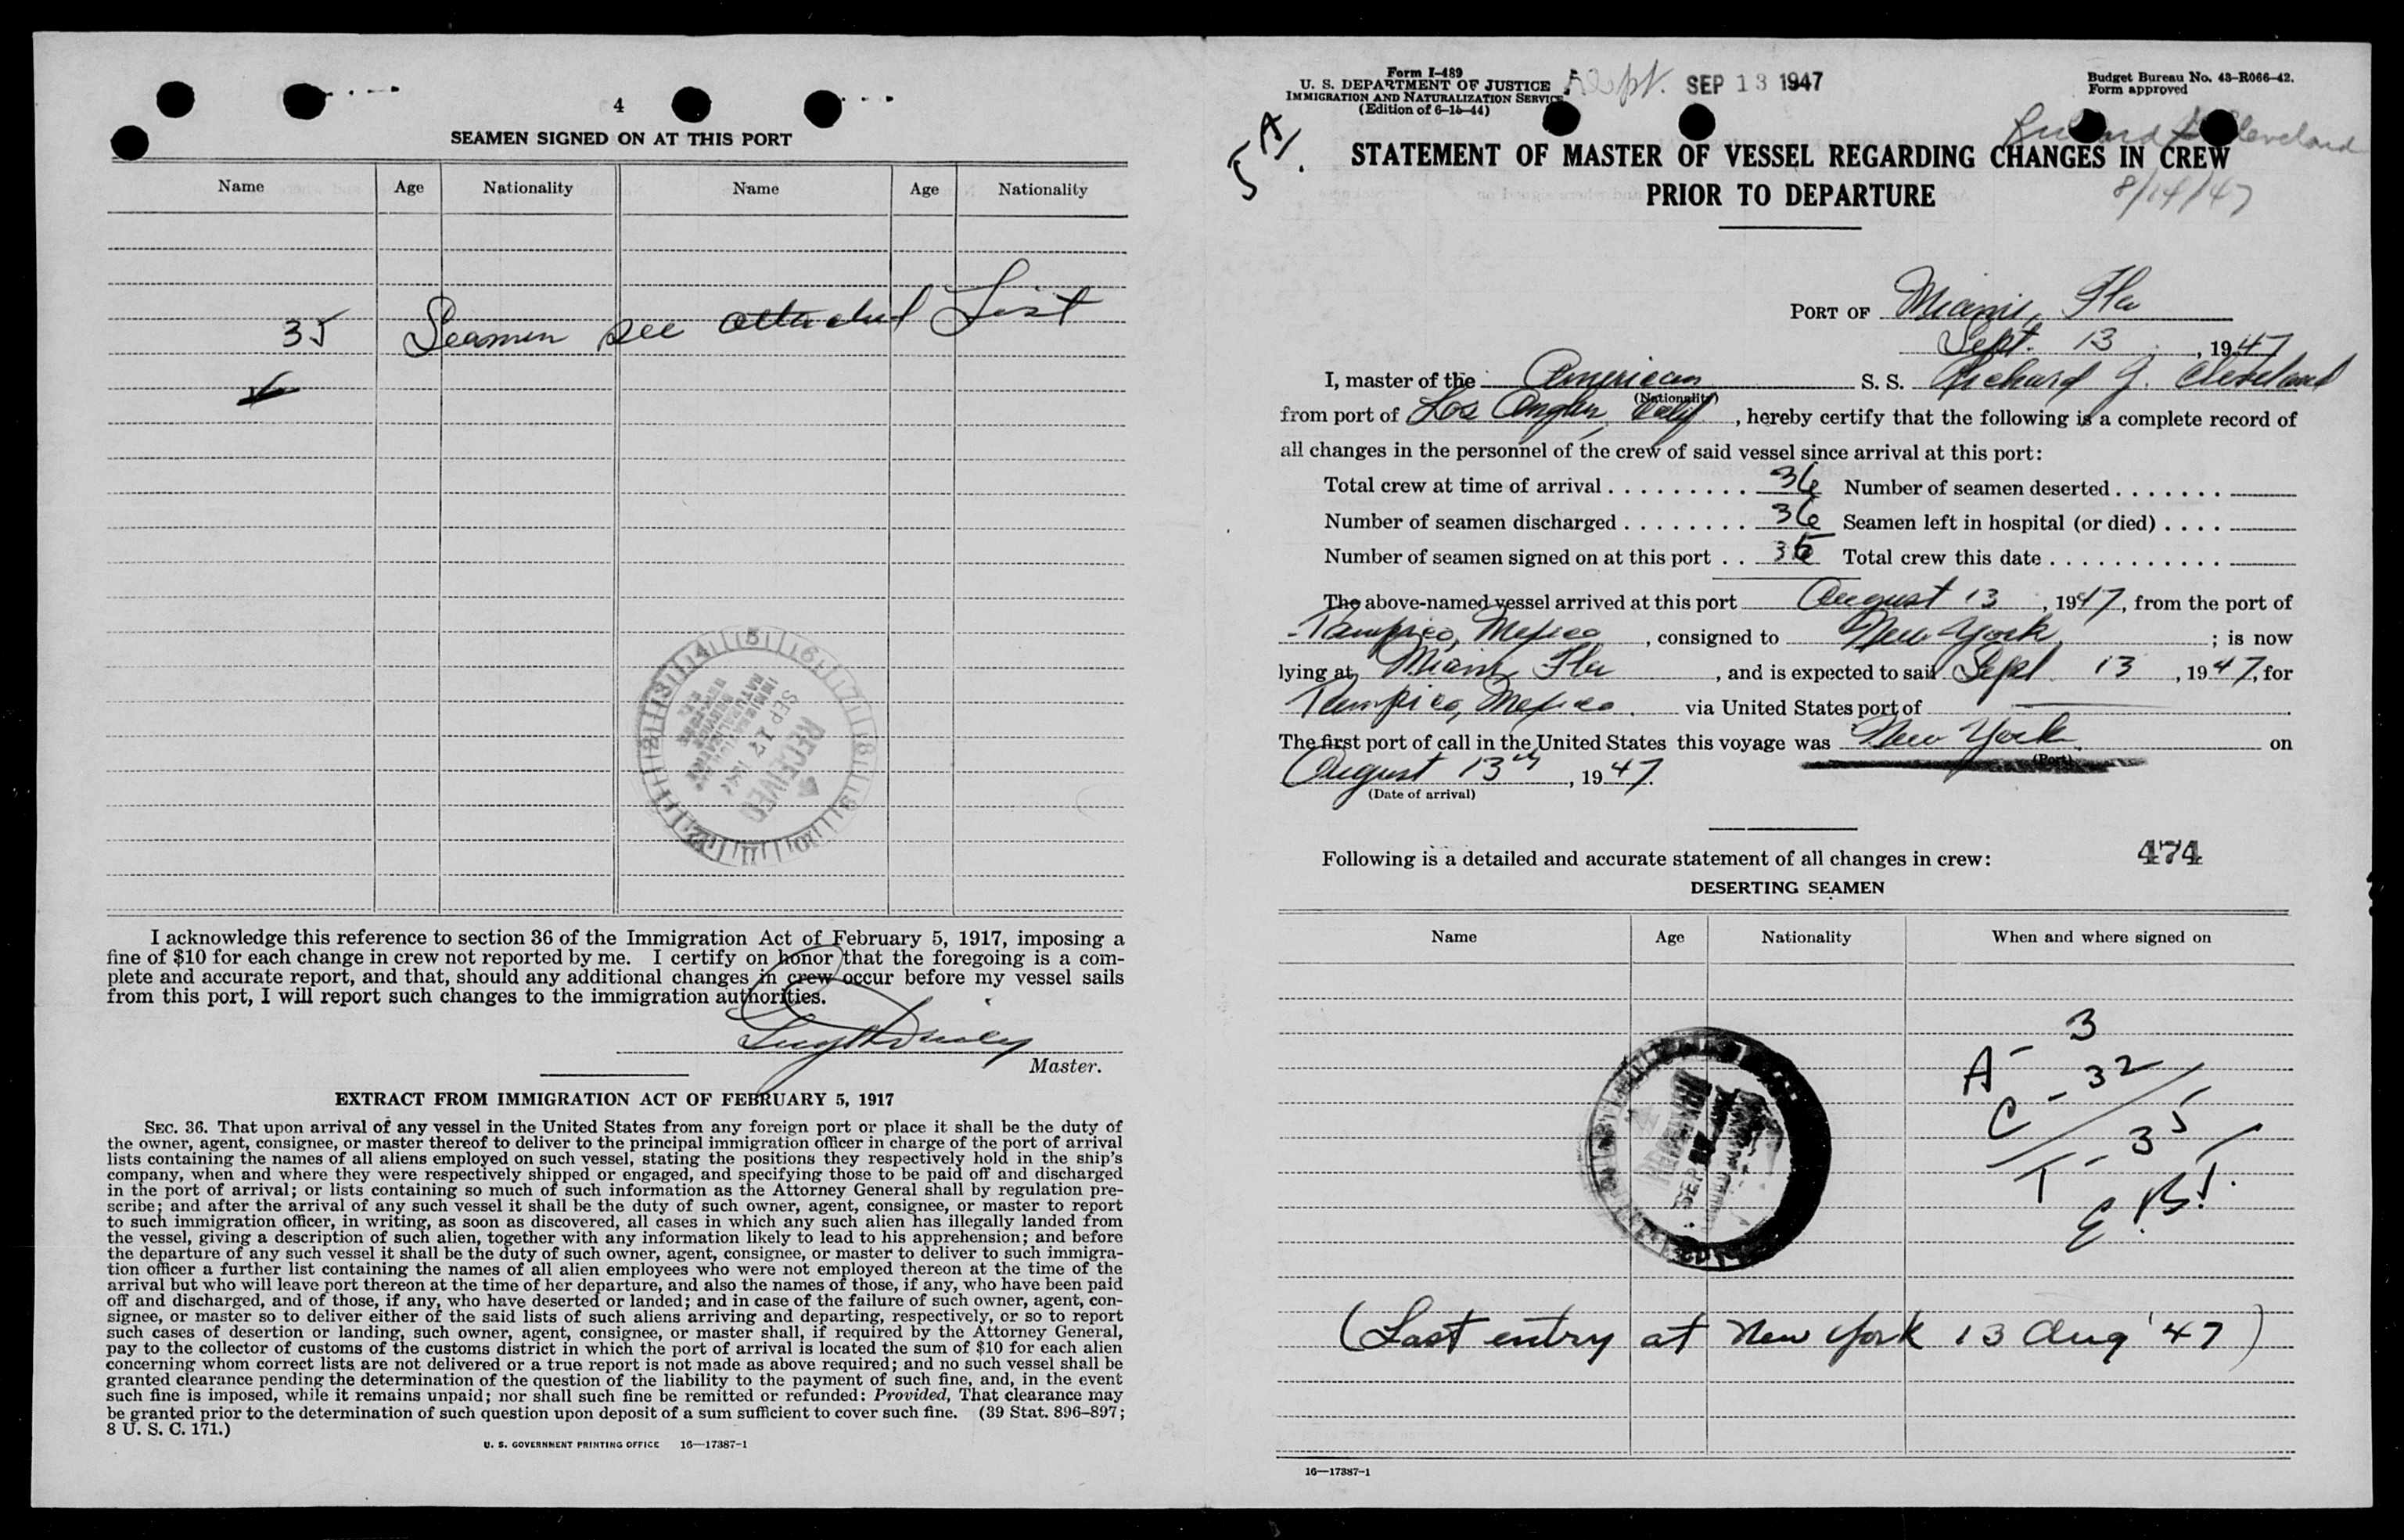 4
SEAMEN SIGNED ON AT THIS PORT
Name Age Nationality Name Age Nationality
35 Seamen see attached List
RECEIVED
SEP 17
I acknowledge this reference to section 36 of the Immigration Act of February 5, 1917, imposing a
fine of $10 for each change in crew not reported by me. I certify on honor that the foregoing is a com-
plete and accurate report, and that, should any additional changes in crew occur before my vessel sails
from this port, I will report such changes to the immigration authorities.
Master.
EXTRACT FROM IMMIGRATION ACT OF FEBRUARY 5, 1917
SEC. 36. That upon arrival of any vessel in the United States from any foreign port or place it shall be the duty of
the owner, agent, consignee, or master thereof to deliver to the principal immigration officer in charge of the port of arrival
lists containing the names of all aliens employed on such vessel, stating the positions they respectively hold in the ship's
company, when and where they were respectively shipped or engaged, and specifying those to be paid off and discharged
in the port of arrival; or lists containing so much of such information as the Attorney General shall by regulation pre-
scribe; and after the arrival of any such vessel it shall be the duty of such owner, agent, consignee, or master to report
to such immigration officer, in writing, as soon as discovered, all cases in which any such alien has illegally landed from
the vessel, giving a description of such alien, together with any information likely to lead to his apprehension; and before
the departure of any such vessel it shall be the duty of such owner, agent, consignee, or master to deliver to such immigra-
tion officer a further list containing the names of all alien employees who were not employed thereon at the time of the
arrival but who will leave port thereon at the time of her departure, and also the names of those, if any, who have been paid
off and discharged, and of those, if any, who have deserted or landed; and in case of the failure of such owner, agent, con-
signee, or master so to deliver either of the said lists of such aliens arriving and departing, respectively, or so to report
such cases of desertion or landing, such owner, agent, consignee, or master shall, if required by the Attorney General,
pay to the collector of customs of the customs district in which the port of arrival is located the sum of $10 for each alien
concerning whom correct lists are not delivered or a true report is not made as above required; and no such vessel shall be
granted clearance pending the determination of the question of the liability to the payment of such fine, and, in the event
such fine is imposed, while it remains unpaid; nor shall such fine be remitted or refunded: Provided, That clearance may
be granted prior to the determination of such question upon deposit of a sum sufficient to cover such fine. (39 Stat. 896-897;
8 U. S. C. 171.)
U. S. GOVERNMENT PRINTING OFFICE 16—17387-1
Form I-489
U. S. DEPARTMENT OF JUSTICE
IMMIGRATION AND NATURALIZATION SERVICE
(Edition of 6-15-44)
Dept. SEP 13 1947
Budget Bureau No. 43-R066-42.
Form approved
Cleveland
5 A/.
STATEMENT OF MASTER OF VESSEL REGARDING CHANGES IN CREW
PRIOR TO DEPARTURE
8/14/47
PORT OF Miami, Fla
Sept. 13, 1947
I, master of the American S. S. Richard J. Cleveland
(Nationality)
from port of Los Angles, Calif, hereby certify that the following is a complete record of
all changes in the personnel of the crew of said vessel since arrival at this port:
Total crew at time of arrival . . . . . . . . . 36 Number of seamen deserted . . . . . . .
Number of seamen discharged . . . . . . . . 36 Seamen left in hospital (or died) . . . .
Number of seamen signed on at this port . . 35 Total crew this date . . . . . . . . . . .
The above-named vessel arrived at this port August 13, 1947, from the port of
Tampico, Mexico, consigned to New York; is now
lying at Miami Fla, and is expected to sail Sept 13, 1947, for
Tampico, Mexico. via United States port of
The first port of call in the United States this voyage was New York on
(Port)
August 13th, 1947.
(Date of arrival)
Following is a detailed and accurate statement of all changes in crew: 474
DESERTING SEAMEN
Name Age Nationality When and where signed on
A - 3
C - 32
T - 35
E.B.J.
SEP
(Last entry at New York 13 Aug '47)
16—17387-1